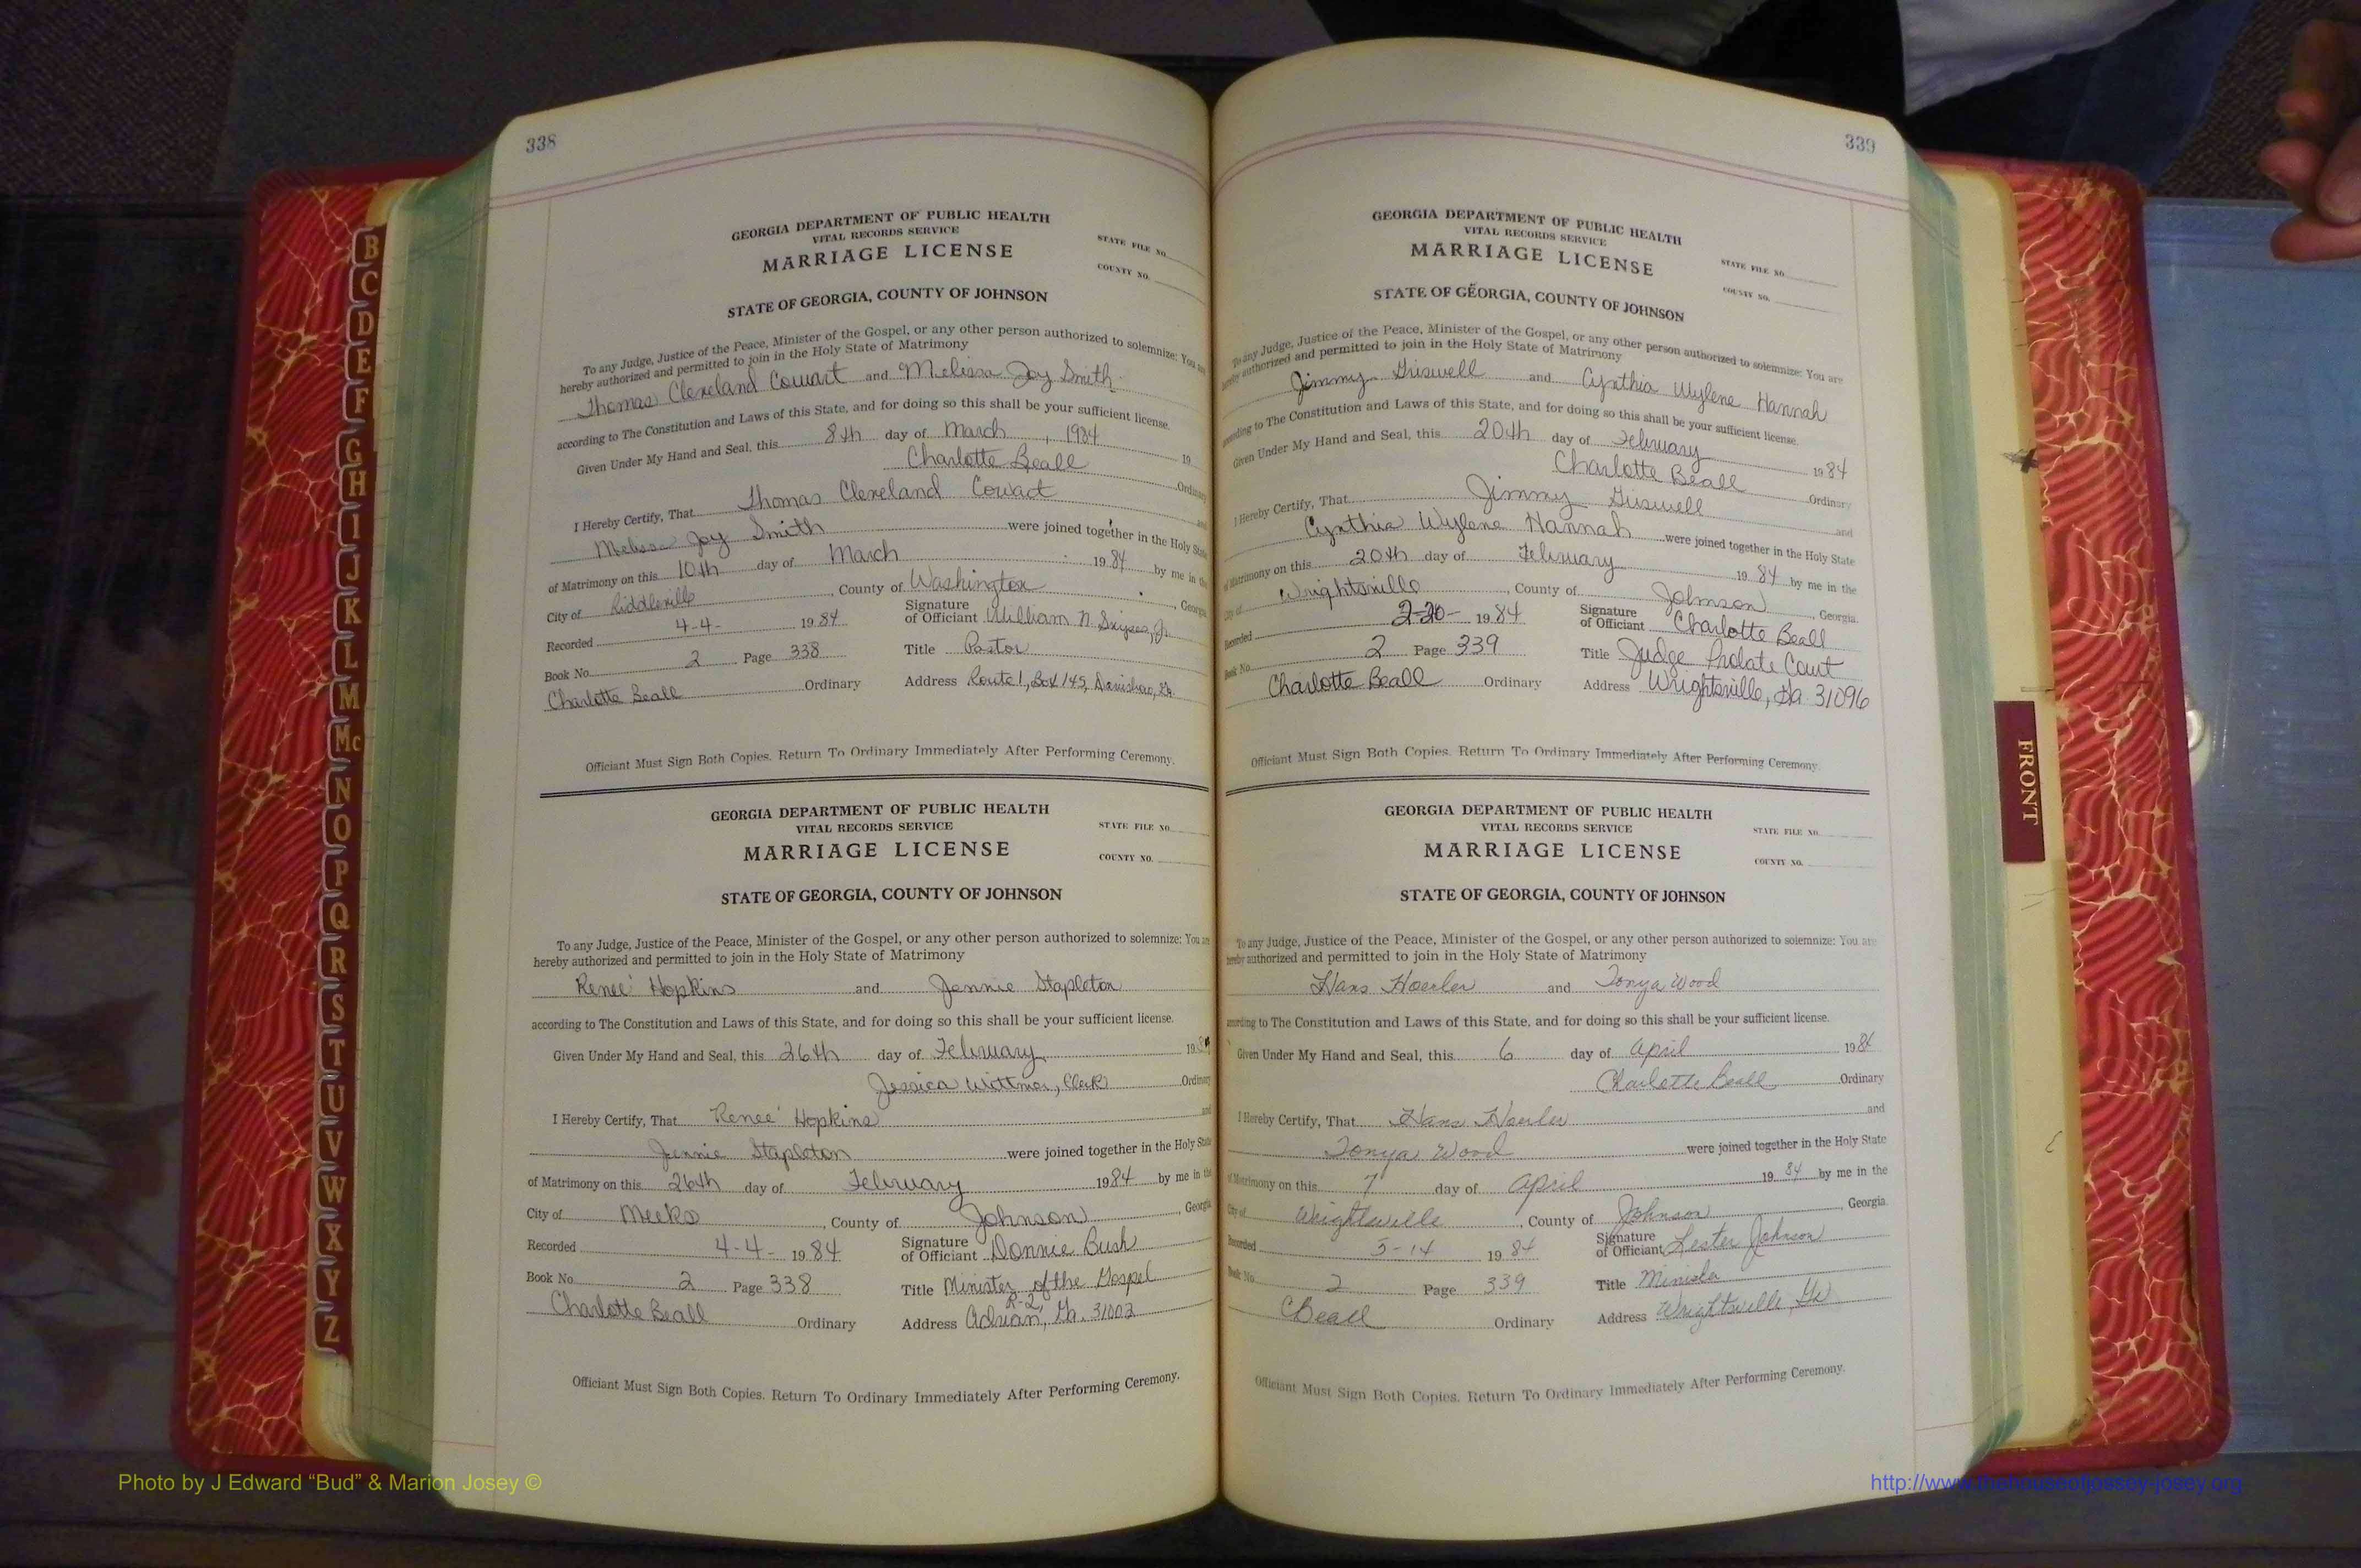 338
GEORGIA DEPARTMENT OF PUBLIC HEALTH
VITAL RECORDS SERVICE
MARRIAGE LICENSE
STATE FILE NO.
COUNTY NO.
STATE OF GEORGIA, COUNTY OF JOHNSON
To any Judge, Justice of the Peace, Minister of the Gospel, or any other person authorized to solemnize: You are
hereby authorized and permitted to join in the Holy State of Matrimony
Thomas Cleveland Cowart and Melissa Joy Smith
according to The Constitution and Laws of this State, and for doing so this shall be your sufficient license.
Given Under My Hand and Seal, this 8th day of March, 1984 19
Charlotte Beall Ordinary
I Hereby Certify, That Thomas Cleveland Cowart and
Melissa Joy Smith were joined together in the Holy State
of Matrimony on this 10th day of March 1984 by me in the
City of Riddleville, County of Washington, Georgia
Recorded 4-4- 1984 Signature of Officiant William N.
Book No. 2 Page 338 Title Pastor
Charlotte Beall Ordinary Address Route 1, Box 145,
Officiant Must Sign Both Copies. Return To Ordinary Immediately After Performing Ceremony.
GEORGIA DEPARTMENT OF PUBLIC HEALTH
VITAL RECORDS SERVICE
MARRIAGE LICENSE
STATE FILE NO.
COUNTY NO.
STATE OF GEORGIA, COUNTY OF JOHNSON
To any Judge, Justice of the Peace, Minister of the Gospel, or any other person authorized to solemnize: You are
hereby authorized and permitted to join in the Holy State of Matrimony
Renee' Hopkins and Jennie Stapleton
according to The Constitution and Laws of this State, and for doing so this shall be your sufficient license.
Given Under My Hand and Seal, this 26th day of February 1984
Jessica Wittmer, Clerk Ordinary
I Hereby Certify, That Renee' Hopkins and
Jennie Stapleton were joined together in the Holy State
of Matrimony on this 26th day of February 1984 by me in the
City of Meeks, County of Johnson, Georgia
Recorded 4-4- 1984 Signature of Officiant Donnie Bush
Book No. 2 Page 338 Title Minister of the Gospel
R-2,
Charlotte Beall Ordinary Address Adrian, Ga. 31002
Officiant Must Sign Both Copies. Return To Ordinary Immediately After Performing Ceremony.
339
GEORGIA DEPARTMENT OF PUBLIC HEALTH
VITAL RECORDS SERVICE
MARRIAGE LICENSE
STATE FILE NO.
COUNTY NO.
STATE OF GEORGIA, COUNTY OF JOHNSON
To any Judge, Justice of the Peace, Minister of the Gospel, or any other person authorized to solemnize: You are
hereby authorized and permitted to join in the Holy State of Matrimony
Jimmy Griswell and Cynthia Wylene Hannah
according to The Constitution and Laws of this State, and for doing so this shall be your sufficient license.
Given Under My Hand and Seal, this 20th day of February 1984
Charlotte Beall Ordinary
I Hereby Certify, That Jimmy Griswell and
Cynthia Wylene Hannah were joined together in the Holy State
of Matrimony on this 20th day of February 1984 by me in the
City of Wrightsville, County of Johnson, Georgia.
Recorded 2-20- 1984 Signature of Officiant Charlotte Beall
Book No. 2 Page 339 Title Judge Probate Court
Charlotte Beall Ordinary Address Wrightsville, Ga 31096
Officiant Must Sign Both Copies. Return To Ordinary Immediately After Performing Ceremony.
GEORGIA DEPARTMENT OF PUBLIC HEALTH
VITAL RECORDS SERVICE
MARRIAGE LICENSE
STATE FILE NO.
COUNTY NO.
STATE OF GEORGIA, COUNTY OF JOHNSON
To any Judge, Justice of the Peace, Minister of the Gospel, or any other person authorized to solemnize: You are
hereby authorized and permitted to join in the Holy State of Matrimony
Hans Hoerler and Tonya Wood
according to The Constitution and Laws of this State, and for doing so this shall be your sufficient license.
Given Under My Hand and Seal, this 6 day of April 1984
Charlotte Beall Ordinary
I Hereby Certify, That Hans Hoerler and
Tonya Wood were joined together in the Holy State
of Matrimony on this 7 day of April 1984 by me in the
City of Wrightsville, County of Johnson, Georgia
Recorded 5-14 1984 Signature of Officiant Lester Johnson
Book No. 2 Page 339 Title Minister
CBeall Ordinary Address Wrightsville, Ga
Officiant Must Sign Both Copies. Return To Ordinary Immediately After Performing Ceremony.
B
C
D
E
F
G
H
I
J
K
L
M
Mc
N
O
P
Q
R
S
T
U
V
W
X
Y
Z
FRONT
Photo by J Edward “Bud” & Marion Josey ©
http://www.thehouseofjossey-josey.org